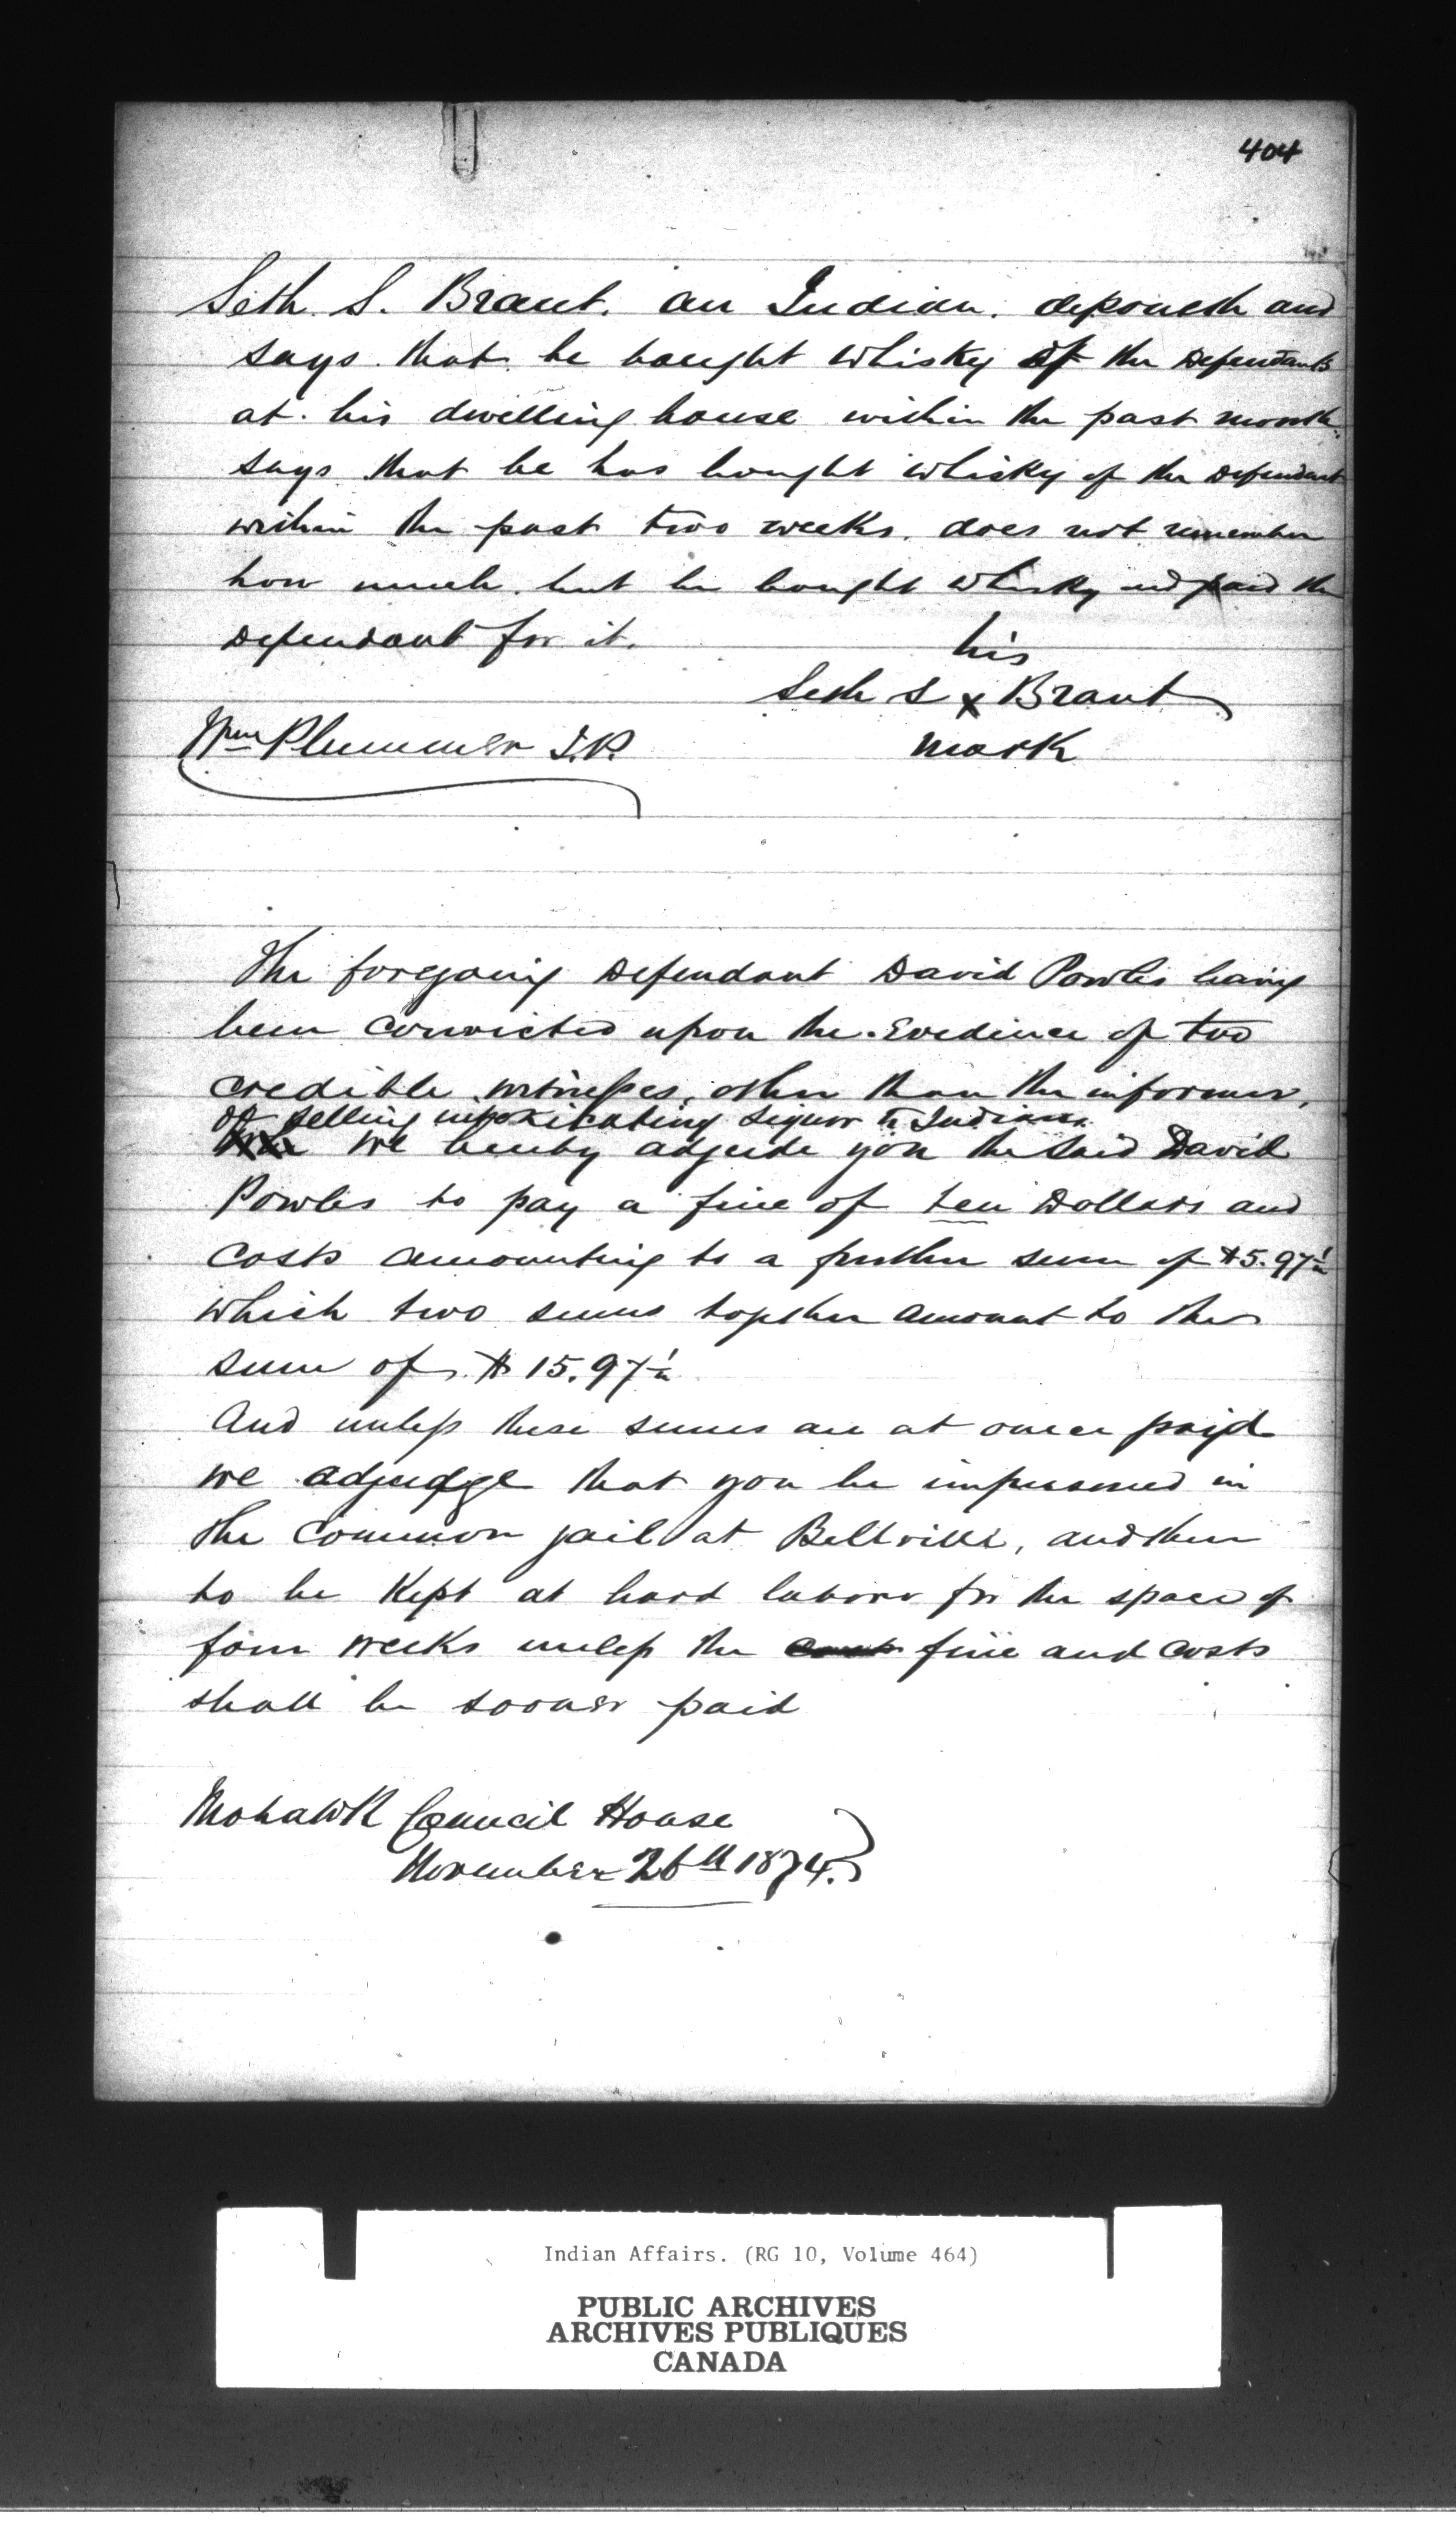 404
Seth. S. Brant. an Indian. deponeth and
says. that he bought whisky of the Defendants
at his dwelling house within the past month.
says that he has bought whisky of the Defendant
within the past two weeks. does not remember
how much. but he bought whisky and paid the
Defendant for it.
his
Seth S x Brant
mark
Wm Plummer J.P.
The foregoing Defendant David Powles having
been convicted upon the Evedince of two
credible witnesses, other than the informer,
of selling intoxicating liquor to Indians.
we hereby adjude you the said David
Powles to pay a fine of ten Dollars and
costs amounting to a further sum of $5.97½
which two sums together amount to the
sum of $15.97½
And unless these sums are at once paid
we adjudge that you be imprisoned in
the Common jail at Bellville, and there
to be Kept at hard labour for the space of
four weeks unless the fine and costs
shall be sooner paid
Mohawk Council House
November 26th 1874.
Indian Affairs. (RG 10, Volume 464)
PUBLIC ARCHIVES
ARCHIVES PUBLIQUES
CANADA